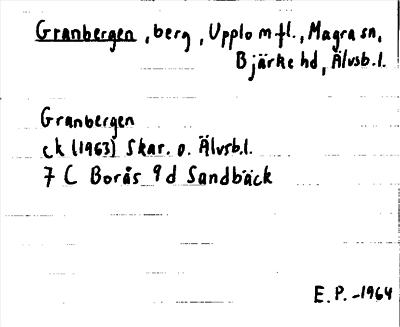 Granbergen, berg, Upplo m fl., Magra sn,
Bjärke hd, Älvsb.l.
Granbergen
ek (1963) Skar. o. Älvsb.l.
7 C Borås 9 d Sandbäck
E.P. -1964